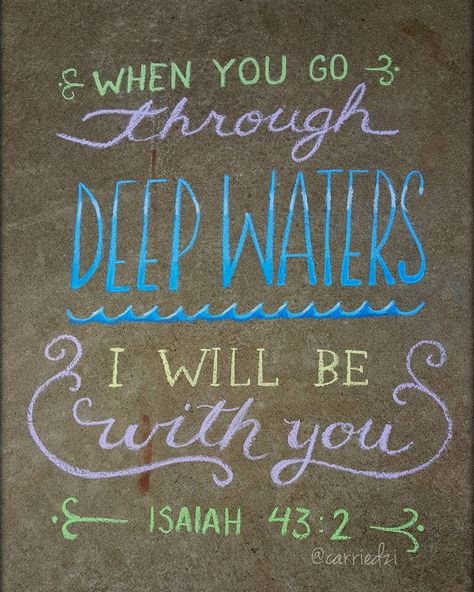 WHEN YOU GO
through
DEEP WATERS
I WILL BE
with you
ISAIAH 43:2
@carriedzi